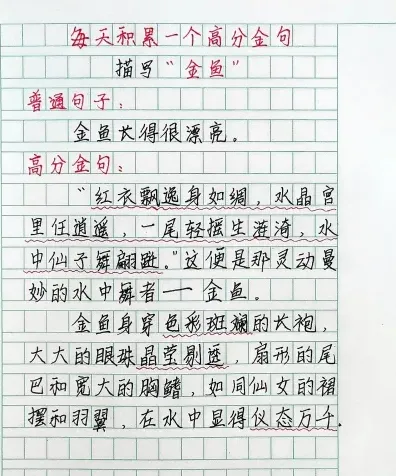 每天积累一个高分金句
描写“金鱼”
普通句子：
金鱼长得很漂亮。
高分金句：
“红衣飘逸身如绸，水晶宫
里任逍遥，一尾轻摇生涟漪，水
中仙子舞翩跹。”这便是那灵动曼
妙的水中舞者——金鱼。
金鱼身穿色彩斑斓的长袍，
大大的眼珠晶莹剔透，扇形的尾
巴和宽大的胸鳍，如同仙女的裙
摆和羽翼，在水中显得仪态万千。